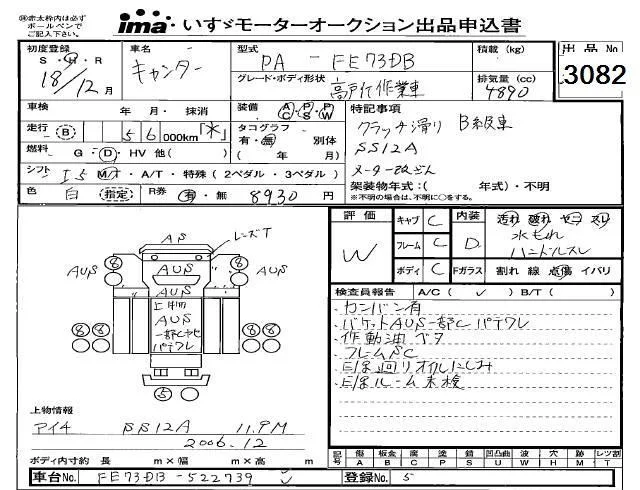 ※赤太枠内は必ず
ボールペンで
ご記入下さい。
ima いすゞモーターオークション出品申込書
初度登録 車名 型式 積載 (kg) 出品No
S・H・R キャンター PA - FE73DB 3082
18/12月 グレード・ボディ形状 排気量 (cc)
高所作業車 4890
車検 年 月・ 抹消 装備 AC PS PW 特記事項
走行 (B) 56000km「*」 タコグラフ 有・無 別体 クラッチ滑り B級車
燃料 G・D・HV 他( ) ( 年 月) SS12A
シフト I5 M/T・A/T・特殊(2ペダル・3ペダル) メーター改ざん
色 白 (指定) R券 有・無 8930円 架装物年式:( 年式)・不明
※不明の場合は、不明に○をする。
評価 キャブ C 内装 汚れ 破れ ヤニ スレ
W フレーム C D 水もれ
ハンドルスレ
ボディ C Fガラス 割れ 線 点傷 イバリ
検査員報告 A/C( ✓ ) B/T( )
・カンバン有
・バケットAUS一部Cパテワレ
・作動油ベタ
・フレームSC
・E/g廻りオイルにじみ
・E/gルーム未検
AS レンズT
8 8
AUS AUS AUS
8 8
AUS
上物
AUS
一部C
パテワレ
5
上物情報
アイチ SS12A 11.9M
2006.12
ボディ内寸約 長 m×幅 m×高 m
記号 傷 板金 腐 塗 錆 凹凸曲 波 穴 跡 レツ割
A B C P S U W H M T
車台No. FE73DB-522739 登録No. 5